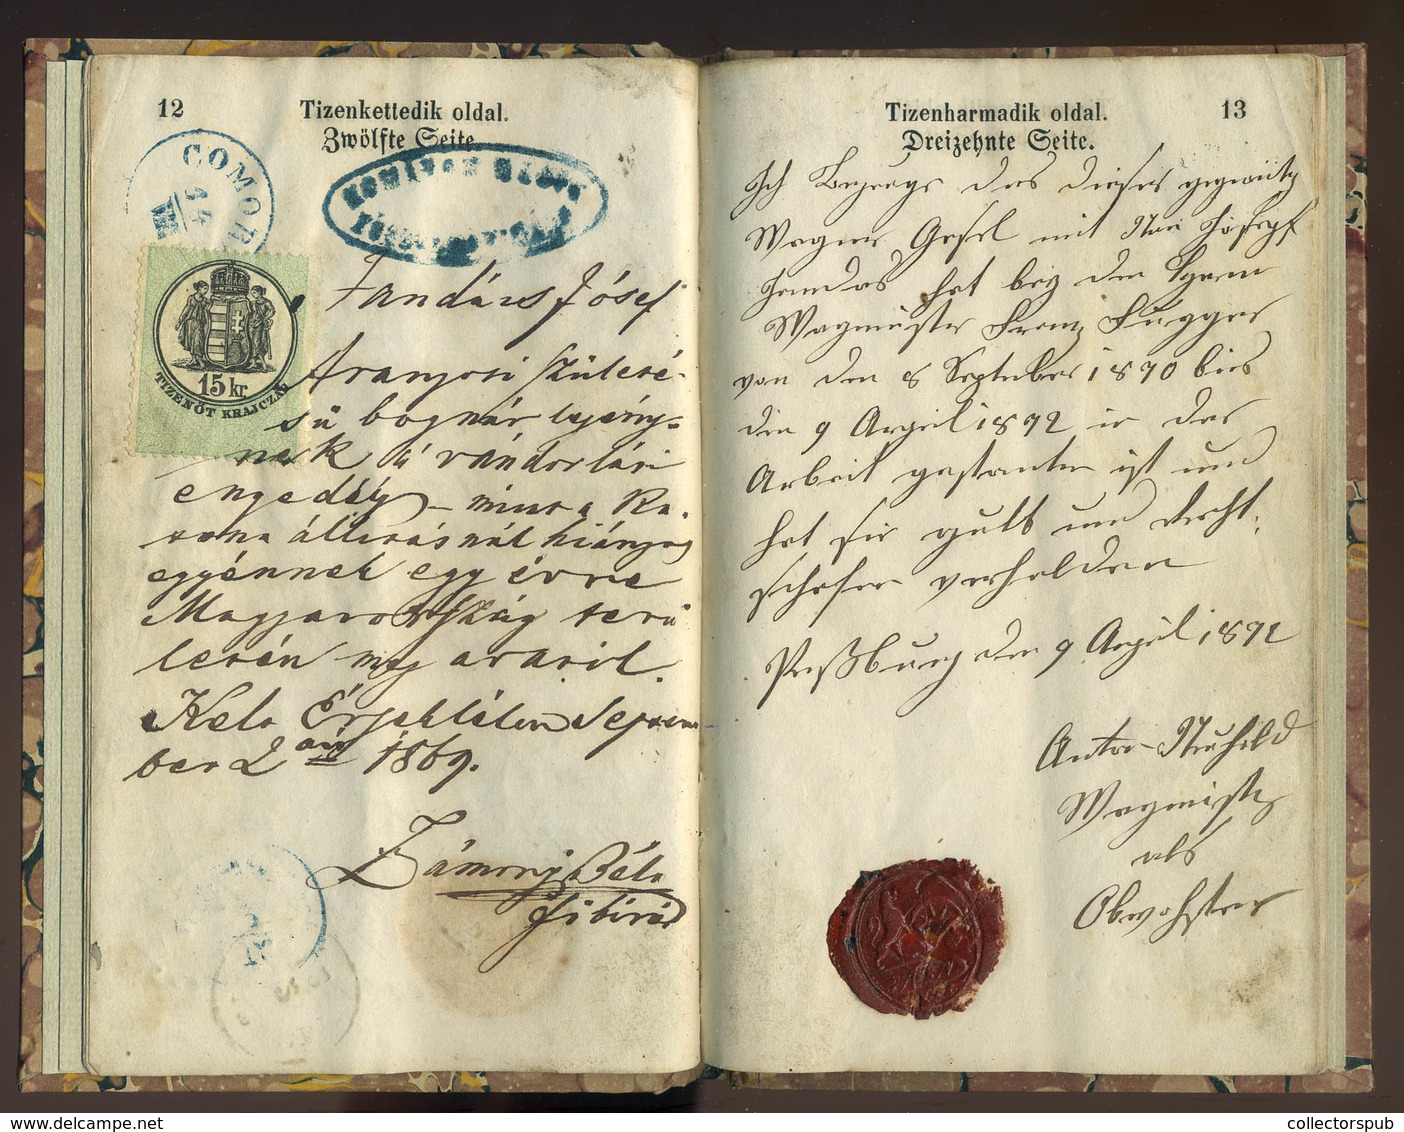 12
Tizenkettedik oldal.
Zwölfte Seite.
COMOR
14
15 kr.
TIZENÖT KRAJCZÁR
Jandács Jósef
Aranyosi születé-
sü bognár legény-
nek a vándorlási
engedély – mint a Ka-
tona állitásnál hiányzó
egyénnek egy évre
Magyarország terü
letén meg adatik.
Kelt Érsekléten Septem
ber 2án 1869.
Zámory Béla
fibiró
Tizenharmadik oldal.
13
Dreizehnte Seite.
Ich Bezeuge das dieser
Wagner Gesel mit Nam Josepf
Jandas hat bey den
Wagmeister Franz Fugger
von den 8 September 1890 bies
den 9 Appril 1892 in der
Arbeit gestanten ist und
hat sie gutt und Recht-
schafen verhalden
Preßburg den 9 Appril 1892
Anton Neuhold
Wagmeister
als
Obvorsteer
collectorspub